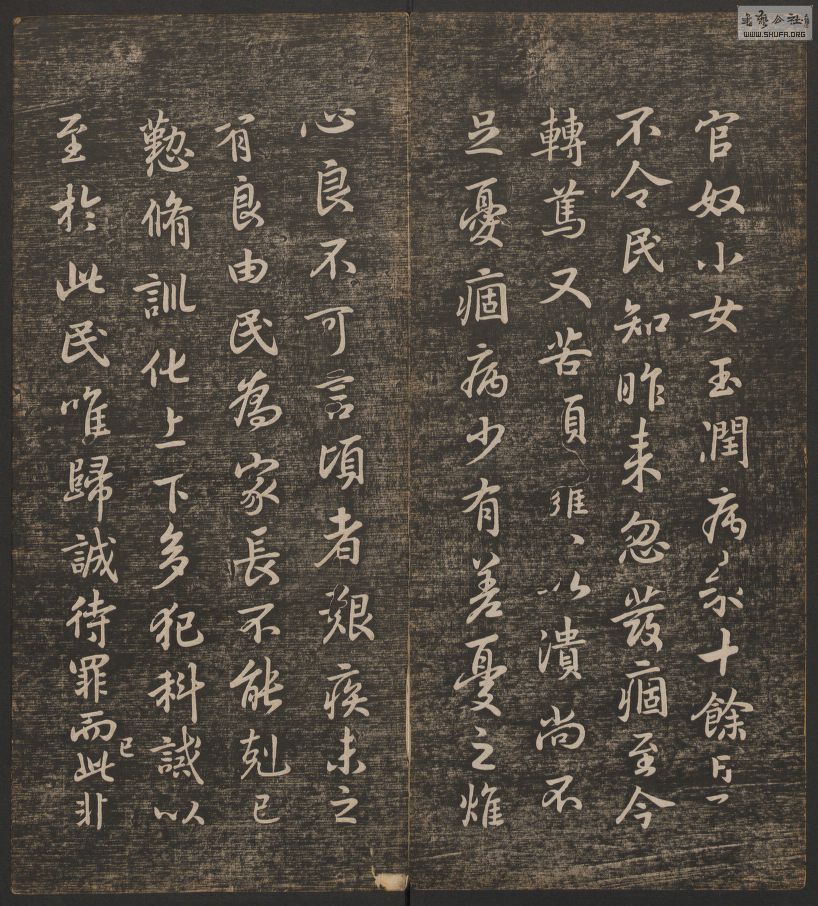 官奴小女玉潤病來十餘日
不令民知昨來忽發痼至今
轉篤又苦頭癰頭癰以潰尚不
足憂痼病少有差憂之燋
心良不可言頃者艱疾未之
有良由民為家長不能剋己
懃脩訓化上下多犯科誡以
至於此民唯歸誠待罪而已此非
WWW.SHUFA.ORG